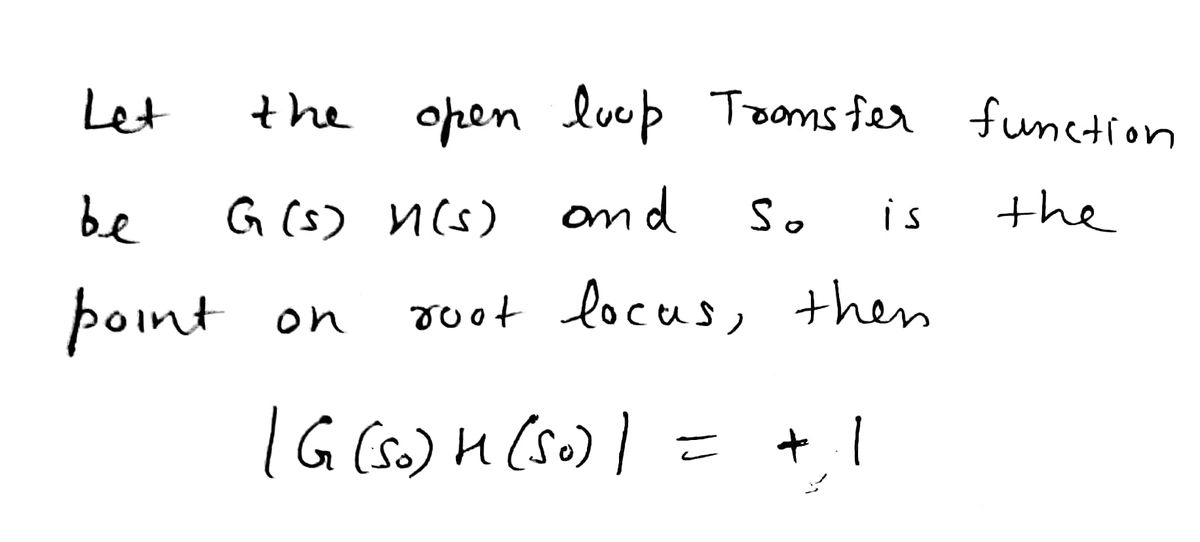 Let the open loop Transfer function
be G(s) H(s) and s₀ is the
point on root locus, then
|G(s₀) H(s₀)| = + 1